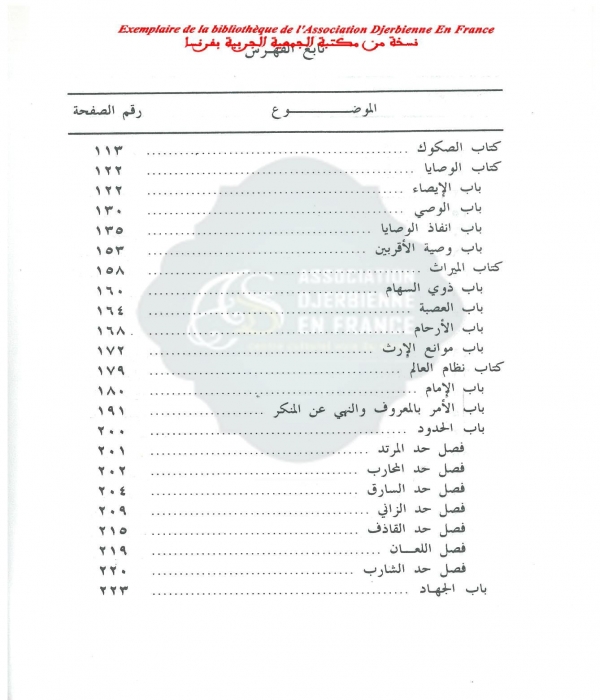 Exemplaire de la bibliothèque de l'Association Djerbienne En France
نسخة من مكتبة الجمعية الجربية بفرنسا
تابع الفهرس
الموضوع رقم الصفحة
كتاب الصكوك ........ ١١٣
كتاب الوصايا ........ ١٢٢
باب الإيصاء ........ ١٢٢
باب الوصي ........ ١٣٠
باب انفاذ الوصايا ........ ١٣٥
باب وصية الأقربين ........ ١٥٣
كتاب الميراث ........ ١٥٨
باب ذوي السهام ........ ١٦٠
باب العصبة ........ ١٦٤
باب الأرحام ........ ١٦٨
باب موانع الإرث ........ ١٧٢
كتاب نظام العالم ........ ١٧٩
باب الإمام ........ ١٨٠
باب الأمر بالمعروف والنهي عن المنكر ........ ١٩١
باب الحدود ........ ٢٠٠
فصل حد المرتد ........ ٢٠١
فصل حد المحارب ........ ٢٠٢
فصل حد السارق ........ ٢٠٤
فصل حد الزاني ........ ٢٠٩
فصل حد القاذف ........ ٢١٥
فصل اللعان ........ ٢١٩
فصل حد الشارب ........ ٢٢٠
باب الجهاد ........ ٢٢٣
ASSOCIATION
DJERBIENNE
EN FRANCE